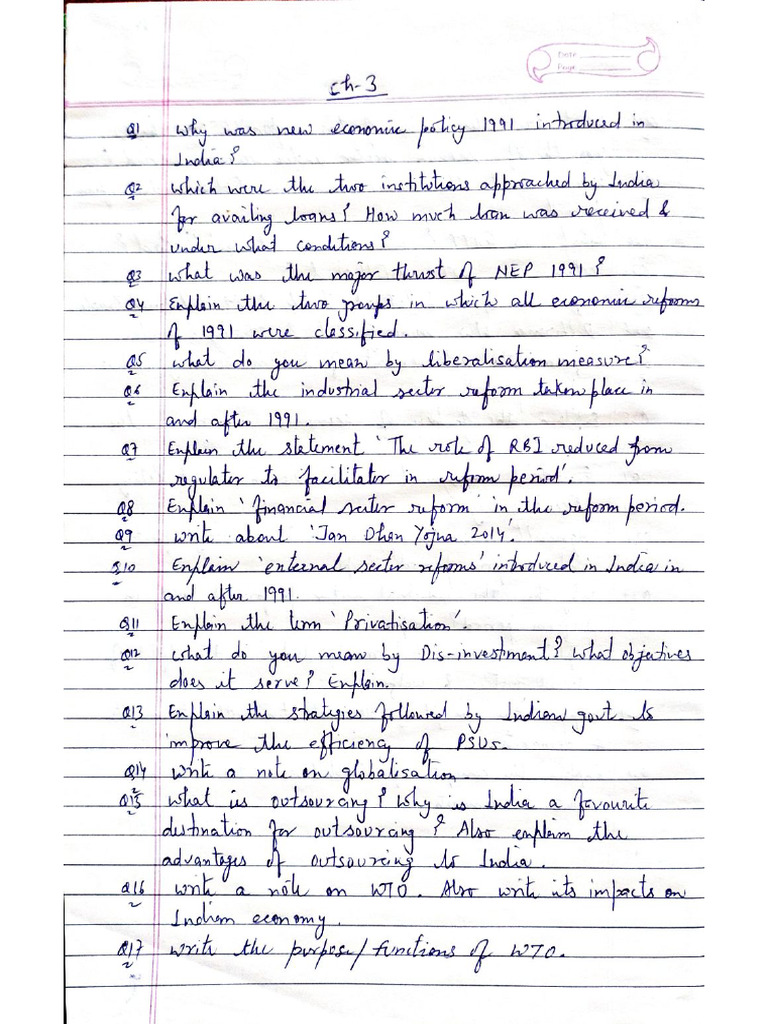 Date
Page
Ch-3
Q1 Why was new economic policy 1991 introduced in
India?
Q2 Which were the two institutions approached by India
for availing loans? How much loan was received &
under what conditions?
Q3 What was the major thrust of NEP 1991?
Q4 Explain the two groups in which all economic reforms
of 1991 were classified.
Q5 What do you mean by liberalisation measure?
Q6 Explain the industrial sector reform taken place in
and after 1991.
Q7 Explain the statement 'The role of RBI reduced from
regulator to facilitator in reform period'.
Q8 Explain 'financial sector reform' in the reform period.
Q9 Write about 'Jan Dhan Yojna 2014'.
Q10 Explain 'external sector reforms' introduced in India in
and after 1991.
Q11 Explain the term 'Privatisation'.
Q12 What do you mean by Dis-investment? What objectives
does it serve? Explain.
Q13 Explain the strategies followed by Indian govt. to
improve the efficiency of PSUs.
Q14 Write a note on globalisation.
Q15 What is outsourcing? Why is India a favourite
destination for outsourcing? Also explain the
advantages of outsourcing to India.
Q16 Write a note on WTO. Also write its impacts on
Indian economy.
Q17 Write the purpose/functions of WTO.